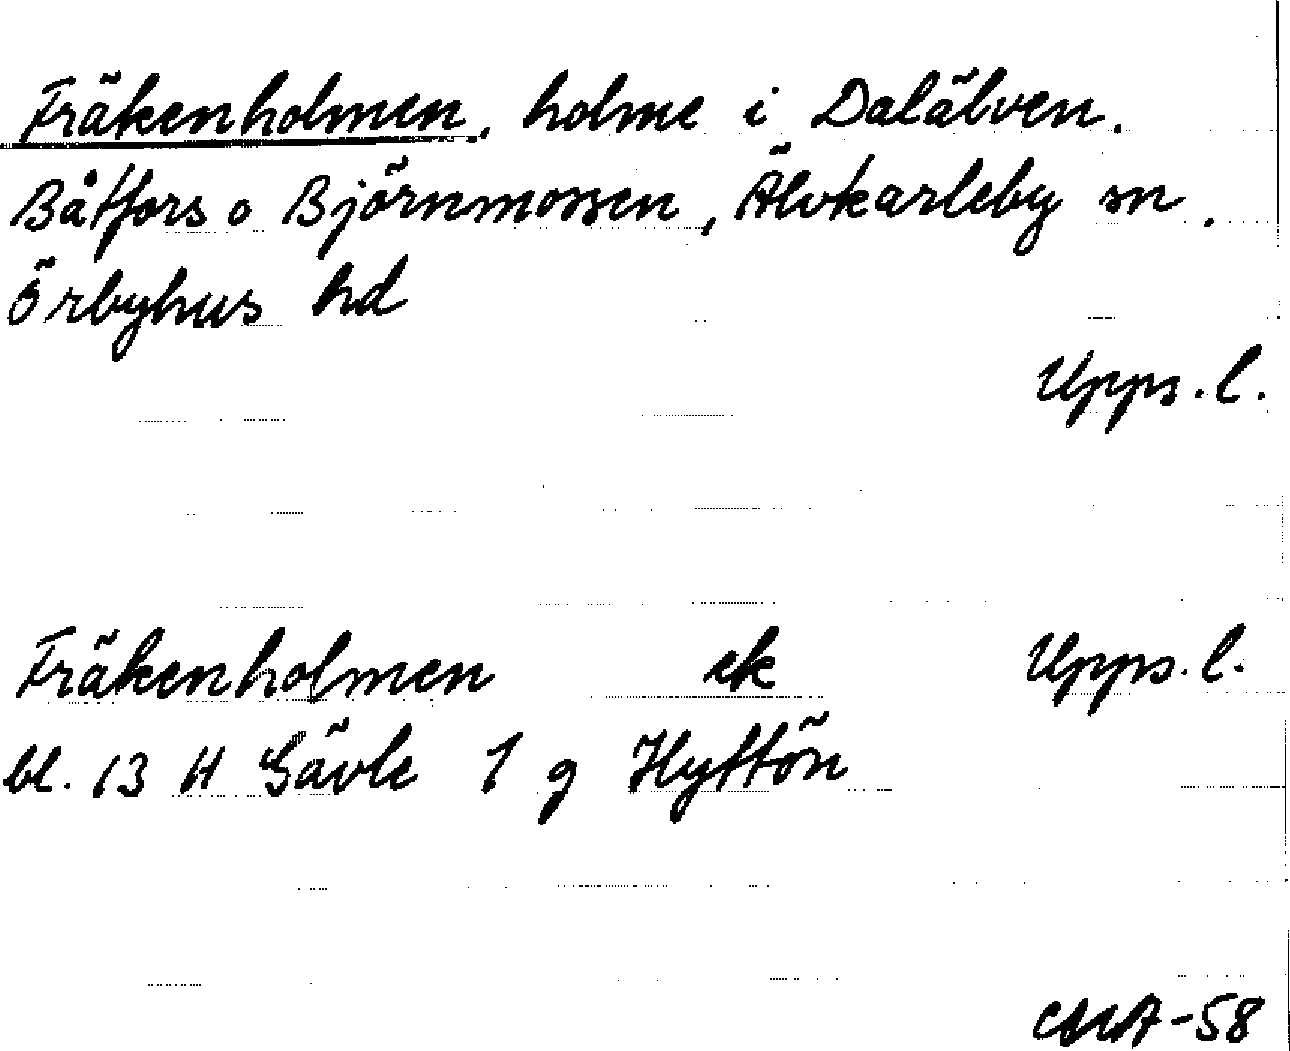 Fräkenholmen, holme i Dalälven.
Båtfors o Björnmossen, Älvkarleby sn.
Örbyhus hd
Upps. l.
Fräkenholmen ek Upps. l.
bl. 13 H Gävle 1 g Hyttön
CMA-58